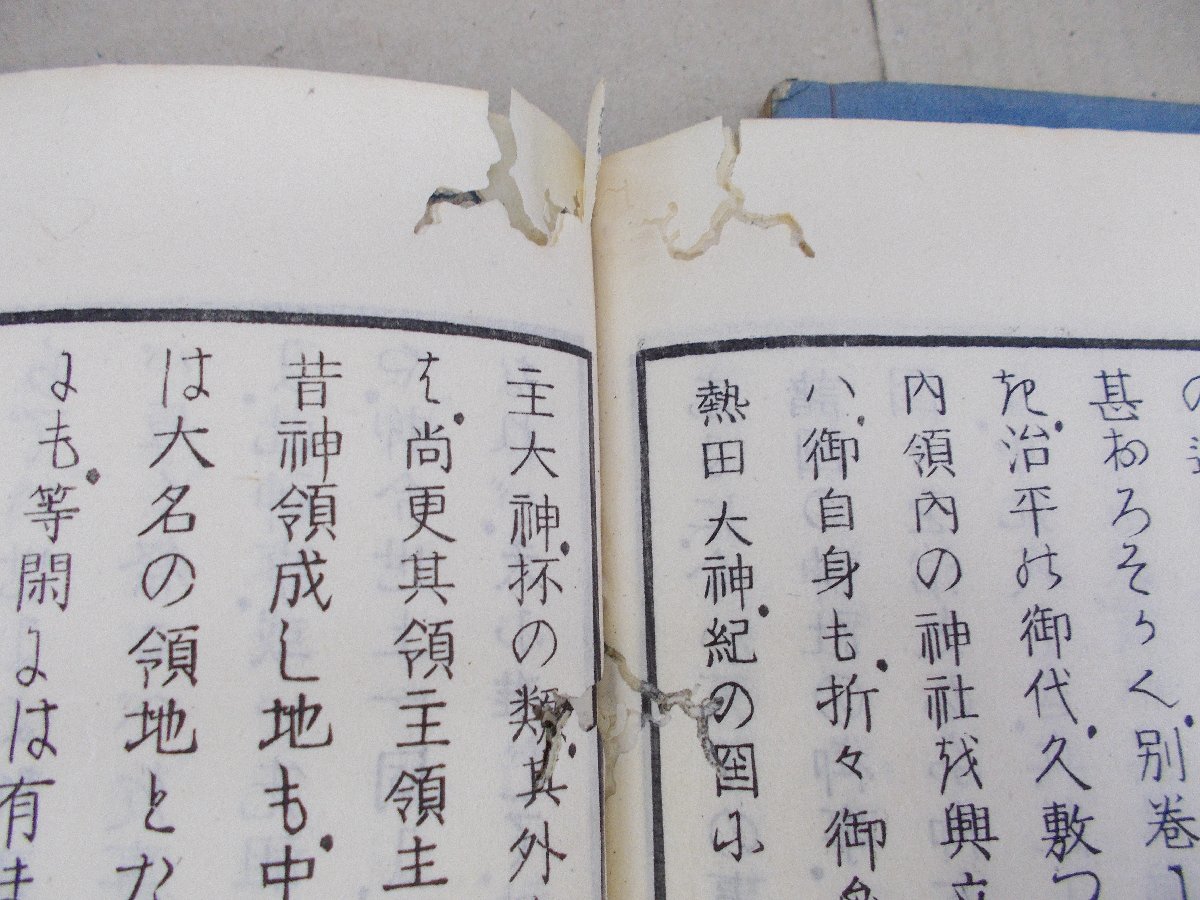 甚おろそかく、別巻
た、治平の御代、久敷つ
内領内の神社を興立
ハ、御自身も、折々御参
熱田大神、紀の国に
主大神、杯の類、其外
は、尚更其領主領主
昔神領成し地も、中
は大名の領地とた
にも、等閑には有ま